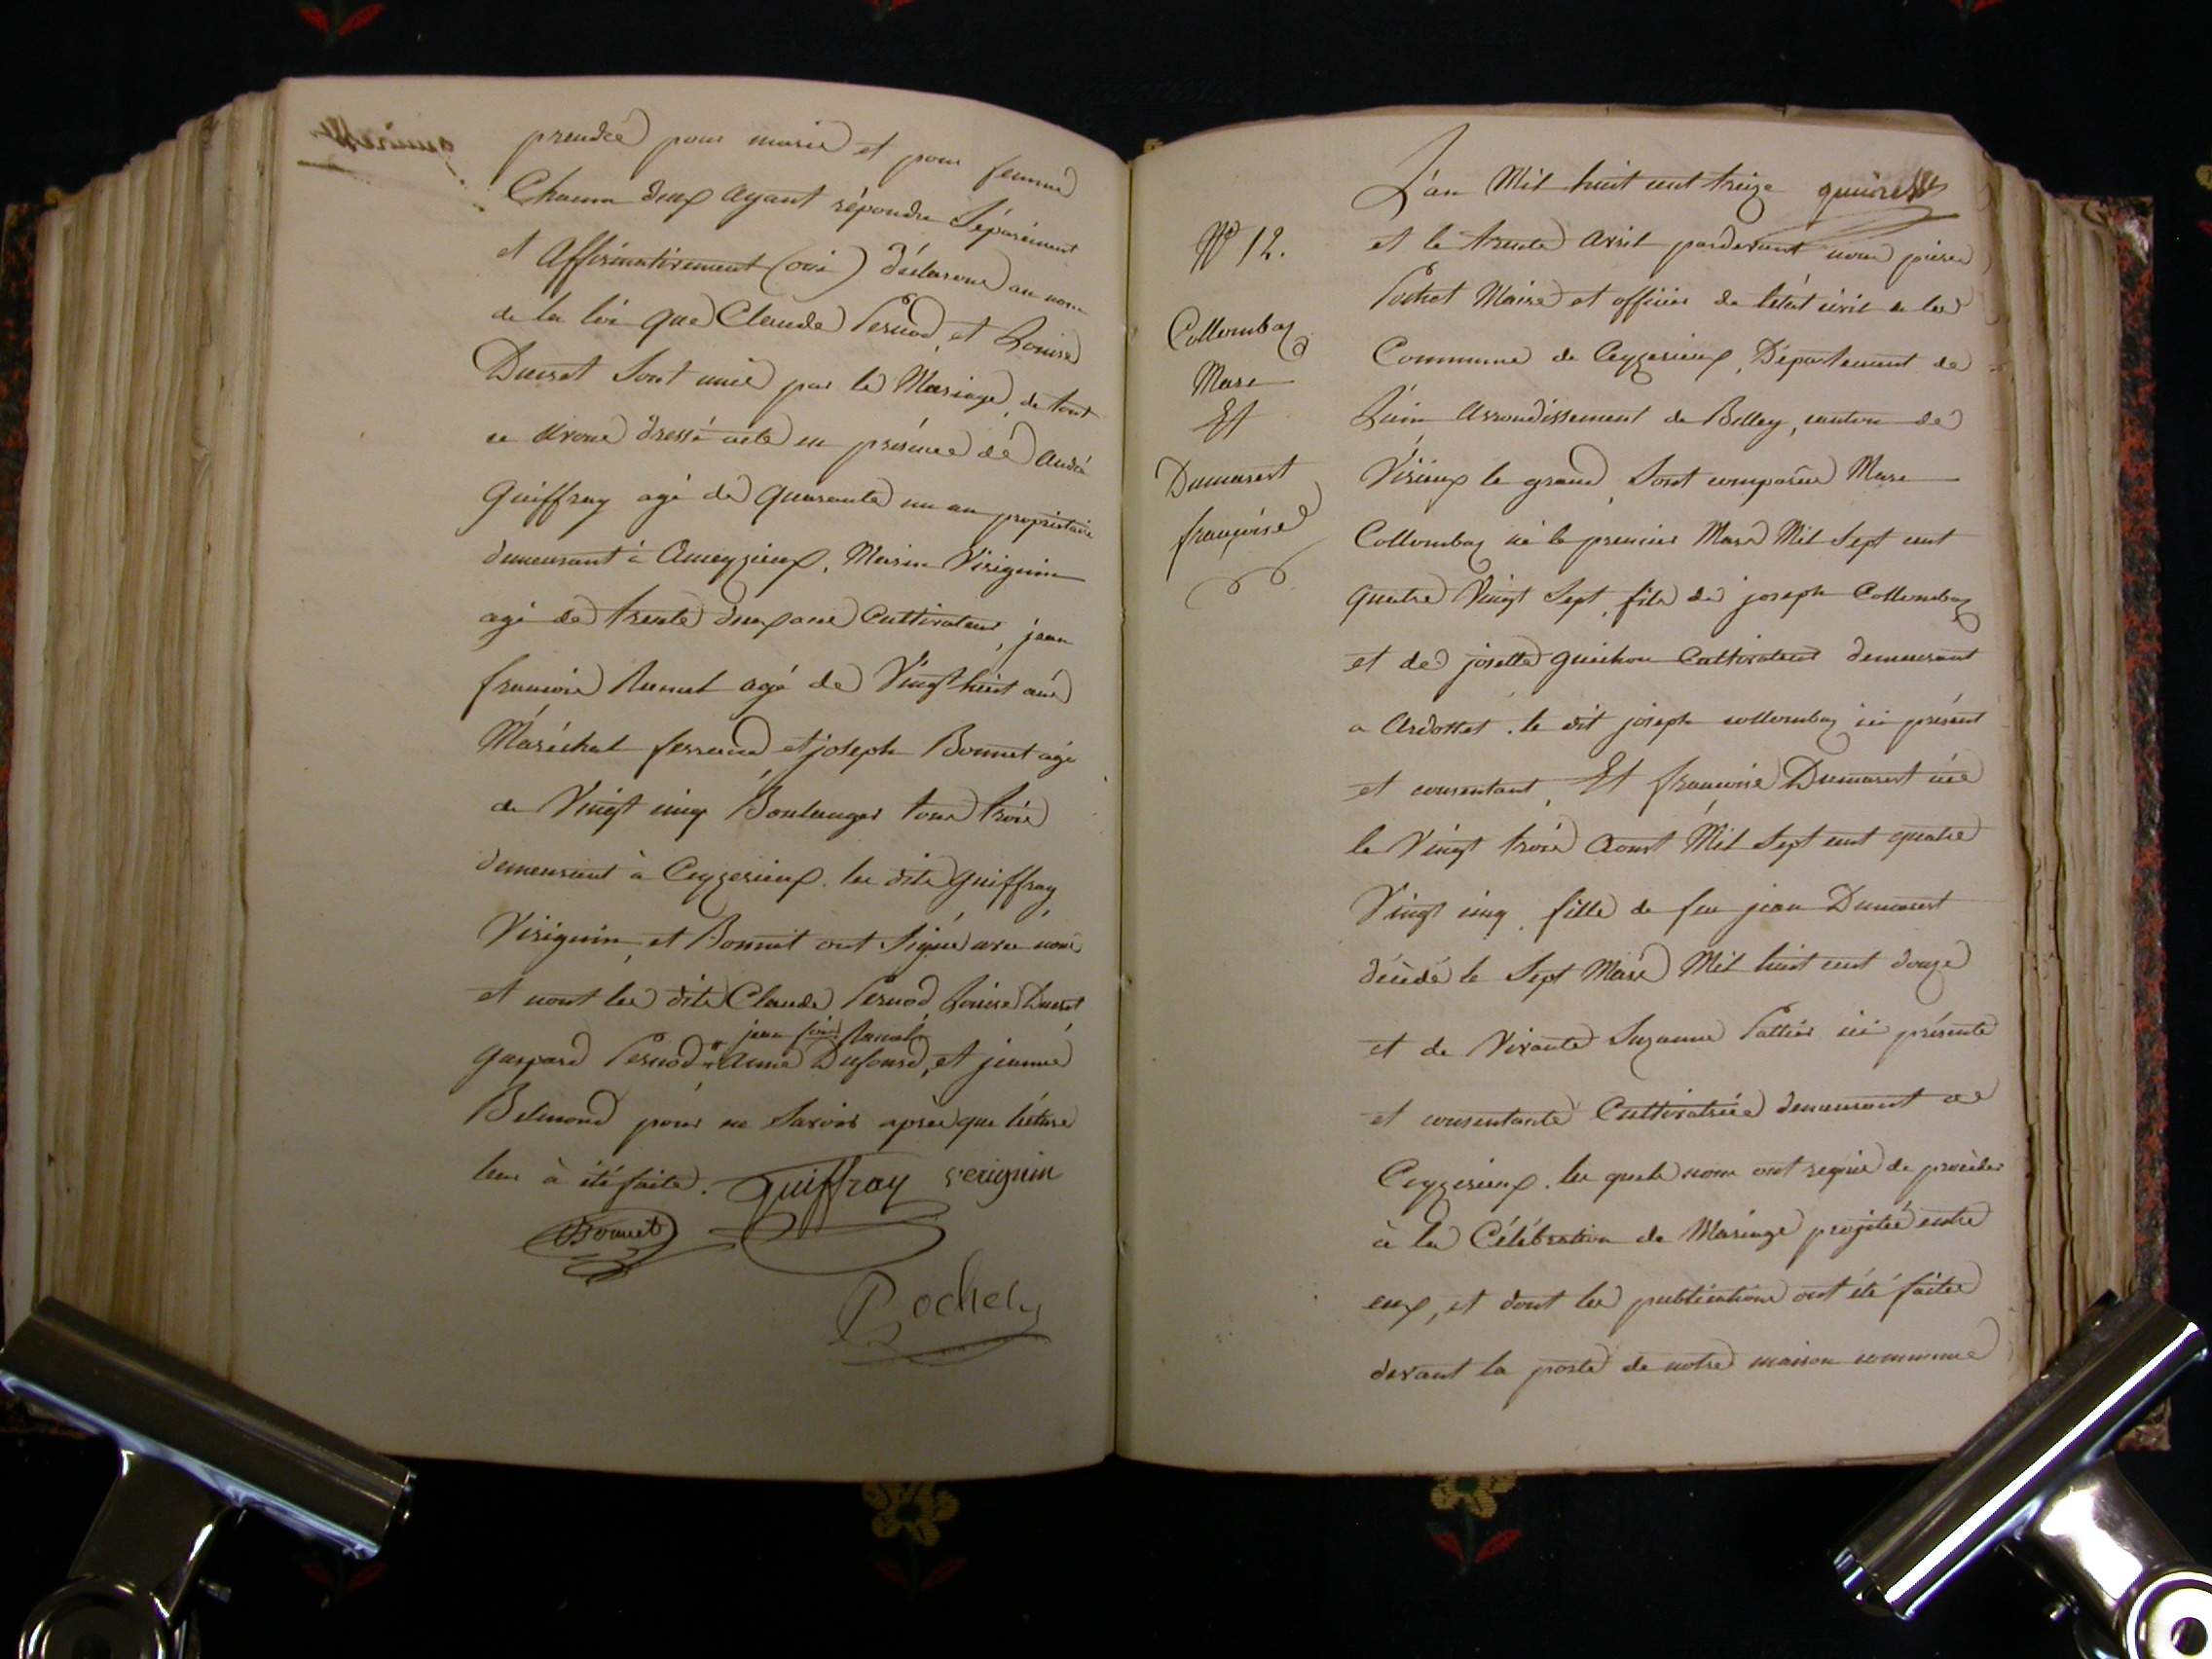 prendre pour marie et pour femme
Chacun deux ayant répondu Séparément
et Affirmativement (oui) déclarons au nom
de la loi que Claude Pernod, et Louise
Ducret Sont unis par le Mariage, de tout
ce avons dressé acte en présence de André
Guiffray agé de quarante un an propriétaire
demeurant à Ameyzieux, Marin Viriguin
agé de trente deux ans Cultivateur, jean
francois Run​el agé de Vingt huit ans
Maréchal ferrand, et joseph Bonnet agé
de Vingt cinq Boulanger tous trois
demeurant à Ceyzerieux. les dits Guiffray,
Viriguin, et Bonnet ont Signé avec nous
et nont les dits Claude Pernod, Louise Ducret
jean fois
Gaspard Pernod, anne Dufourd, et jeanne
Belmond pour ne Savoir après que lecture
leur à été faite. Guiffray veriguin
Bonnet
Pochet
L'an Mil huit cent treize
N° 12.
et le trente avril pardevant nous
Pochet Maire et officier de l'état civil de la
Collomba​z
Commune de Ceyzerieux, Département de
Marc
Et
L'ain Arrondissement de Belley, canton de
Dumarest
Virieux le grand, Sont comparus Marc
françoise
Collombaz né le premier Mars Mil Sept cent
quatre Vingt Sept, fils de joseph Collombaz
et de josette Guichon Cultivateur demeurant
a Ardosset. le dit joseph collombaz ici présent
et consentant, Et francoise Dumarest née
le Vingt trois Aoust Mil Sept cent quatre
Vingt cinq, fille de feu jean Dumarest
décédé le Sept Mars Mil huit cent douze
et de Vivante Suzanne Pattier ici présente
et consentante Cultivatrice demeurant a
Ceyzerieux. les quels nous ont requis de procéder
à la Célébration de Mariage projetée entre
eux, et dont les publications ont été faites
devant la porte de notre maison commune